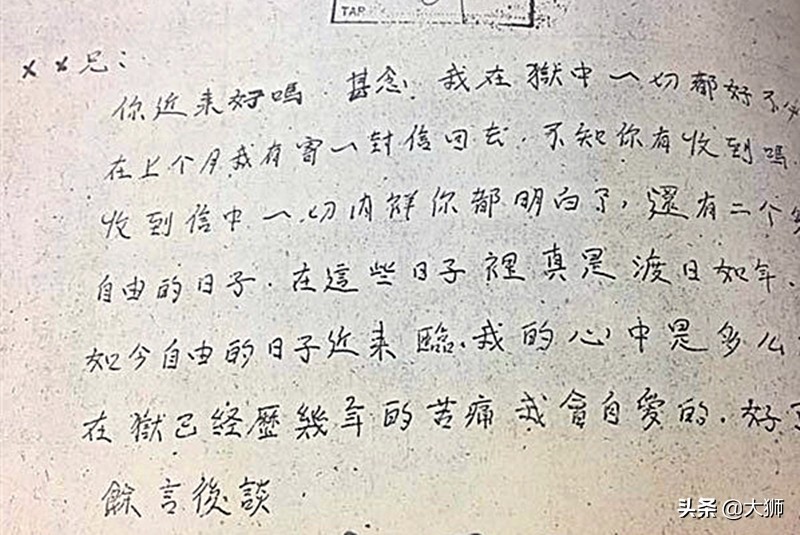 TAP
××兄：
你近来好嗎．甚念．我在獄中一切都好不
在上个月我有寄一封信回去．不知你有收到嗎．
收到信中一切内詳你都明白了，還有二个
自由的日子．在這些日子裡真是渡日如年．
如今自由的日子近来臨．我的心中是多么
在獄已经歷幾年的苦痛我會自愛的．好了
餘言後談．
头条 @大狮